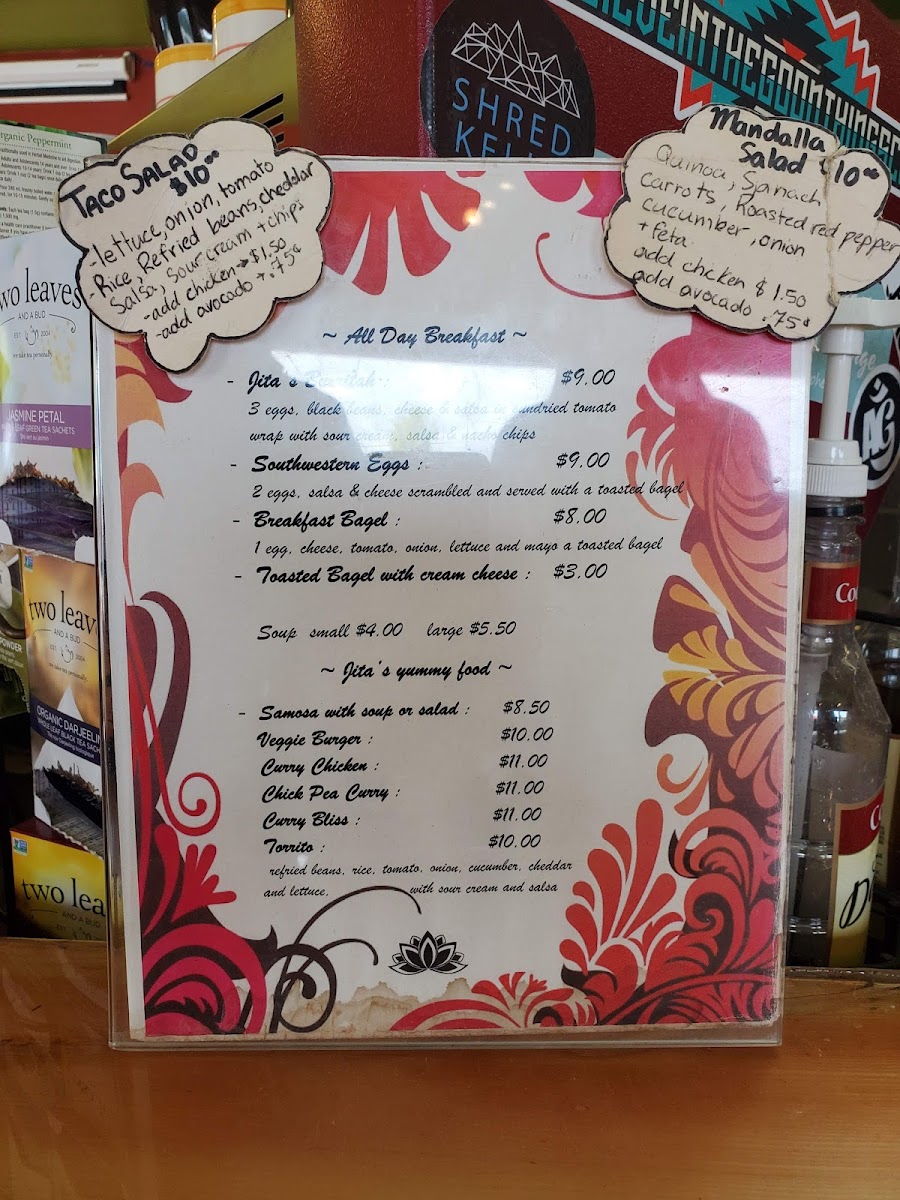 TACO SALAD
$10⁰⁰
-lettuce, onion, tomato
-Rice, Refried beans, cheddar
Salsa, sour cream + chips
-add chicken → $1.50
-add avocado +.75¢
Mandalla
Salad $10⁰⁰
Quinoa, Spinach
Carrots, Roasted red pepper
cucumber, onion
+ feta
add chicken $1.50
add avocado .75¢
SHRED
~ All Day Breakfast ~
- Jita's : $9.00
3 eggs, black beans, cheese & salsa in sundried tomato
wrap with sour cream, salsa & nacho chips
- Southwestern Eggs : $9.00
2 eggs, salsa & cheese scrambled and served with a toasted bagel
- Breakfast Bagel : $8.00
1 egg, cheese, tomato, onion, lettuce and mayo a toasted bagel
- Toasted Bagel with cream cheese : $3.00
Soup small $4.00 large $5.50
~ Jita's yummy food ~
- Samosa with soup or salad : $8.50
Veggie Burger : $10.00
Curry Chicken : $11.00
Chick Pea Curry : $11.00
Curry Bliss : $11.00
Torrito : $10.00
refried beans, rice, tomato, onion, cucumber, cheddar
and lettuce, with sour cream and salsa
Organic Peppermint
two leaves
AND A BUD
EST 2004
we take tea personally
JASMINE PETAL
LEAF GREEN TEA SACHETS
POWDER
two leav
AND A BUD
ORGANIC DARJEELIN
WHOLE LEAF BLACK TEA SACH
two lea
AND A BUD